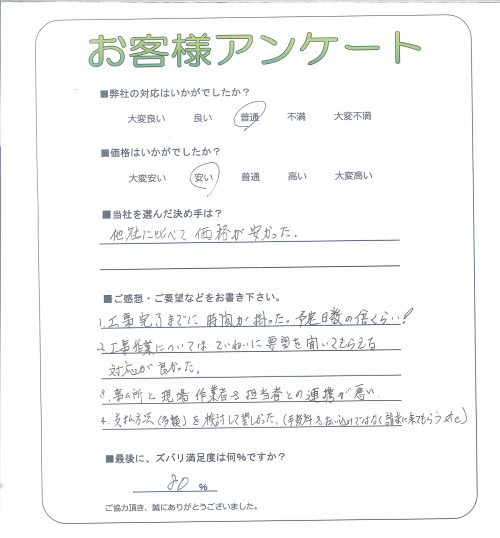 お客様アンケート
■弊社の対応はいかがでしたか？
大変良い 良い 普通 不満 大変不満
■価格はいかがでしたか？
大変安い 安い 普通 高い 大変高い
■当社を選んだ決め手は？
他社に比べて 価格が安かった.
■ご感想・ご要望などをお書き下さい。
1. 工事完了までに 時間が掛った。予定日数の倍くらい!
2. 工事作業については ていねいに要望を聞いてもらえる
対応が良かった。
3. 事ム所と現場作業者を担当者との連携が悪い
4. 支払方法 を検討して望しかった。(手数料 ではなく 請求に来てもらう etc)
■最後に、ズバリ満足度は何%ですか？
80 %
ご協力頂き、誠にありがとうございました。